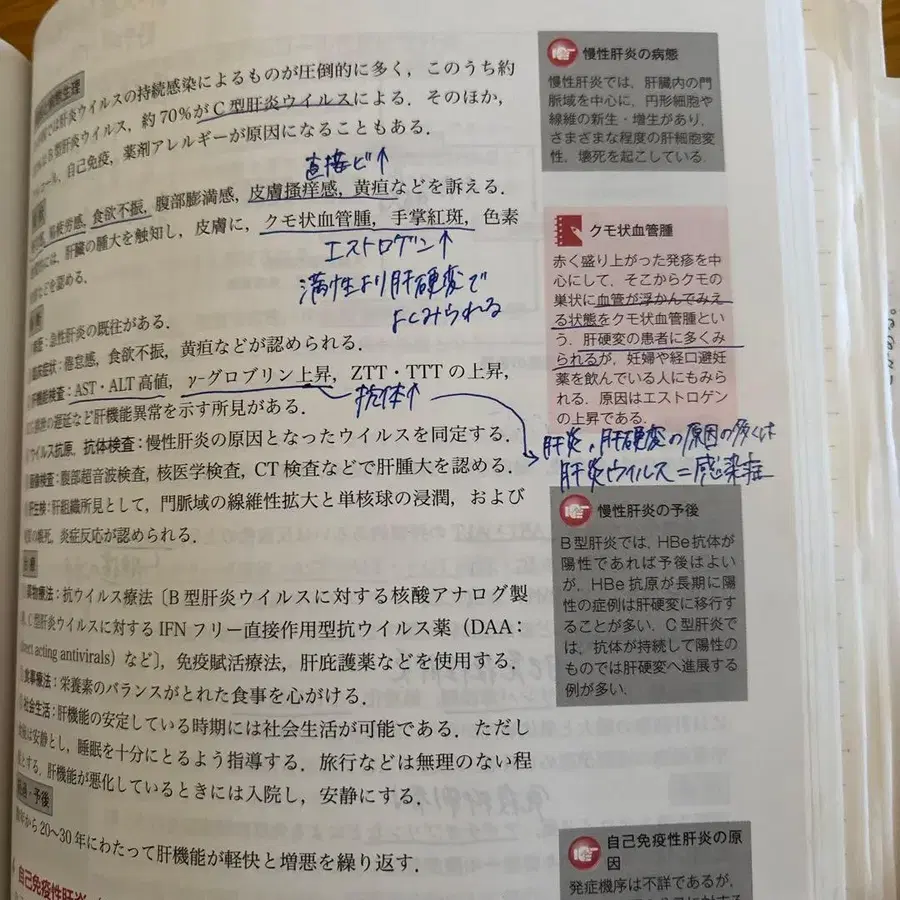 病態生理
では肝炎ウイルスの持続感染によるものが圧倒的に多く，このうち約
B型肝炎ウイルス，約70%がC型肝炎ウイルスによる．そのほか，
ール，自己免疫，薬剤アレルギーが原因になることもある．
直接ビ↑
易疲労感，食欲不振，腹部膨満感，皮膚掻痒感，黄疸などを訴える．
には，肝臓の腫大を触知し，皮膚に，クモ状血管腫，手掌紅斑，色素
などを認める．
エストロゲン↑
満性より肝硬変で
よくみられる
：急性肝炎の既往がある．
臨床症状：倦怠感，食欲不振，黄疸などが認められる．
肝機能検査：AST・ALT高値，γ-グロブリン上昇，ZTT・TTTの上昇，
の遅延など肝機能異常を示す所見がある．
抗体↑
ウイルス抗原，抗体検査：慢性肝炎の原因となったウイルスを同定する．
画像検査：腹部超音波検査，核医学検査，CT検査などで肝腫大を認める．
肝生検：肝組織所見として，門脈域の線維性拡大と単核球の浸潤，および
の壊死，炎症反応が認められる．
治療
薬物療法：抗ウイルス療法〔B型肝炎ウイルスに対する核酸アナログ製
，C型肝炎ウイルスに対するIFNフリー直接作用型抗ウイルス薬（DAA：
direct acting antivirals）など〕，免疫賦活療法，肝庇護薬などを使用する．
食事療法：栄養素のバランスがとれた食事を心がける．
社会生活：肝機能の安定している時期には社会生活が可能である．ただし
は安静とし，睡眠を十分にとるよう指導する．旅行などは無理のない程
とする．肝機能が悪化しているときには入院し，安静にする．
経過・予後
から20～30年にわたって肝機能が軽快と増悪を繰り返す．
自己免疫性肝炎
慢性肝炎の病態
慢性肝炎では，肝臓内の門
脈域を中心に，円形細胞や
線維の新生・増生があり，
さまざまな程度の肝細胞変
性，壊死を起こしている．
クモ状血管腫
赤く盛り上がった発疹を中
心にして，そこからクモの
巣状に血管が浮かんでみえ
る状態をクモ状血管腫とい
う．肝硬変の患者に多くみ
られるが，妊婦や経口避妊
薬を飲んでいる人にもみら
れる．原因はエストロゲン
の上昇である．
肝炎，肝硬変の原因の多くは
肝炎ウイルス＝感染症
慢性肝炎の予後
B型肝炎では，HBe抗体が
陽性であれば予後はよい
が，HBe抗原が長期に陽
性の症例は肝硬変に移行す
ることが多い．C型肝炎で
は，抗体が持続して陽性の
ものでは肝硬変へ進展する
例が多い．
自己免疫性肝炎の原
因
発症機序は不詳であるが，